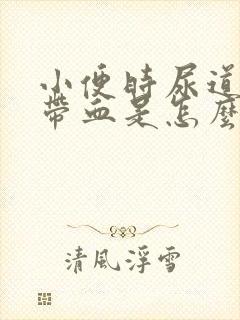 小便時尿道
帶血是怎麼
清風浮雪